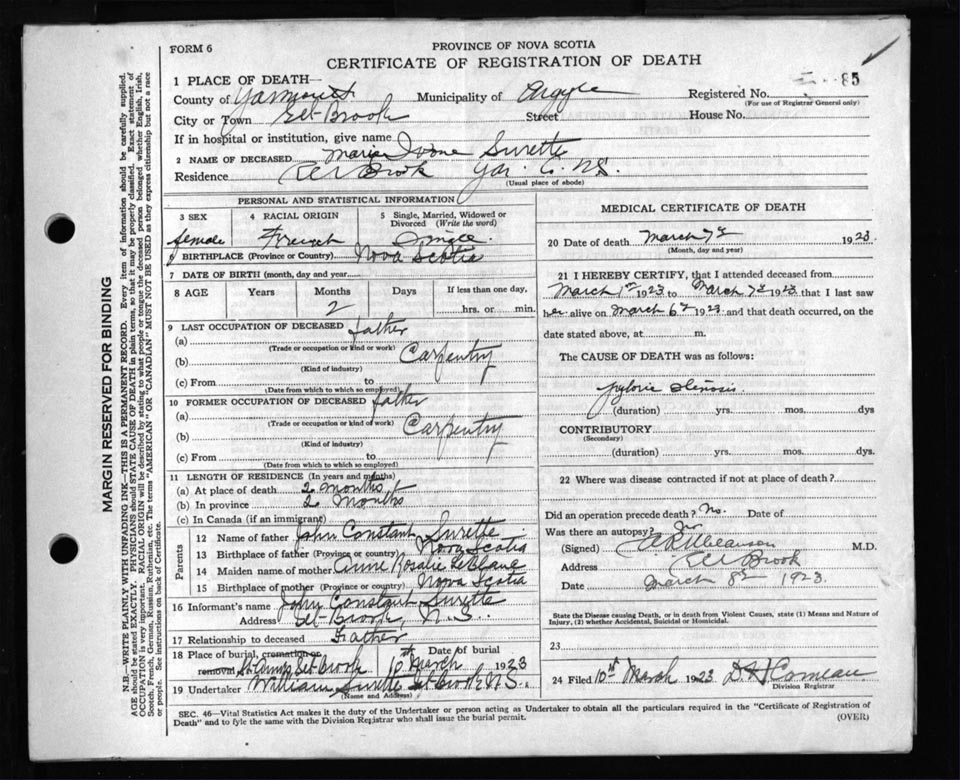 FORM 6
PROVINCE OF NOVA SCOTIA
CERTIFICATE OF REGISTRATION OF DEATH
85
1 PLACE OF DEATH—
County of Yarmouth Municipality of Argyle Registered No.
(For use of Registrar General only)
City or Town Eel-Brook Street House No.
If in hospital or institution, give name
2 NAME OF DECEASED Marie Ivone Surette
Residence Eel Brook Yar. Co. N.S.
(Usual place of abode)
PERSONAL AND STATISTICAL INFORMATION
3 SEX 4 RACIAL ORIGIN 5 Single, Married, Widowed or Divorced (Write the word)
female French Single.
6 BIRTHPLACE (Province or Country) Nova Scotia
7 DATE OF BIRTH (month, day and year)
8 AGE Years Months Days If less than one day,
2 hrs. or min.
9 LAST OCCUPATION OF DECEASED father
(a)
(Trade or occupation or kind or work)
(b) Carpentry
(Kind of industry)
(c) From to
(Date from which to which so employed)
10 FORMER OCCUPATION OF DECEASED father
(a)
(Trade or occupation or kind of work)
(b) Carpentry
(Kind of industry)
(c) From to
(Date from which to which so employed)
11 LENGTH OF RESIDENCE (In years and months)
(a) At place of death 2 months
(b) In province 2 months
(c) In Canada (if an immigrant)
Parents
12 Name of father John Constant Surette
13 Birthplace of father (Province or country) Nova Scotia
14 Maiden name of mother Anne Rosalie LeBlanc
15 Birthplace of mother (Province or country) Nova Scotia
16 Informant's name John Constant Surette
Address Eel-Brook, N.S.
17 Relationship to deceased Father
18 Place of burial, cremation or Date of burial
removal St. Anns Eel-Brook 10th March 1923
19 Undertaker William Surette Eel-Brook N.S.
(Name and Address)
MEDICAL CERTIFICATE OF DEATH
20 Date of death March 7th 1923.
(Month, day and year)
21 I HEREBY CERTIFY, that I attended deceased from
March 1st 1923 to March 7th 1923 that I last saw
her alive on March 6th 1923 and that death occurred, on the
date stated above, at m.
The CAUSE OF DEATH was as follows:
Pyloric stenosis.
(duration) yrs. mos. dys
CONTRIBUTORY
(Secondary)
(duration) yrs. mos. dys.
22 Where was disease contracted if not at place of death?
Did an operation precede death? No. Date of
Was there an autopsy? No
(Signed) M.D.
Address Eel Brook
Date March 8th 1923.
State the Disease causing Death, or in death from Violent Causes, state (1) Means and Nature of
Injury, (2) whether Accidental, Suicidal or Homicidal.
23
24 Filed 10th March 1923 D H Comeau
Division Registrar
SEC. 46—Vital Statistics Act makes it the duty of the Undertaker or person acting as Undertaker to obtain all the particulars required in the "Certificate of Registration of
Death" and to fyle the same with the Division Registrar who shall issue the burial permit.
(OVER)
MARGIN RESERVED FOR BINDING
N.B.—WRITE PLAINLY WITH UNFADING INK—THIS IS A PERMANENT RECORD. Every item of information should be carefully supplied.
AGE should be stated EXACTLY. PHYSICIANS should STATE CAUSE OF DEATH in plain terms, so that it may be properly classified. Exact statement of
OCCUPATION is very important. RACIAL ORIGIN will be described by stating to what people or tongue the deceased person belonged whether English, Irish,
Scotch, French, German, Russian, Ruthenian, etc. The terms "AMERICAN" OR "CANADIAN" MUST NOT BE USED as they express citizenship but not a race
or people. See instructions on back of Certificate.